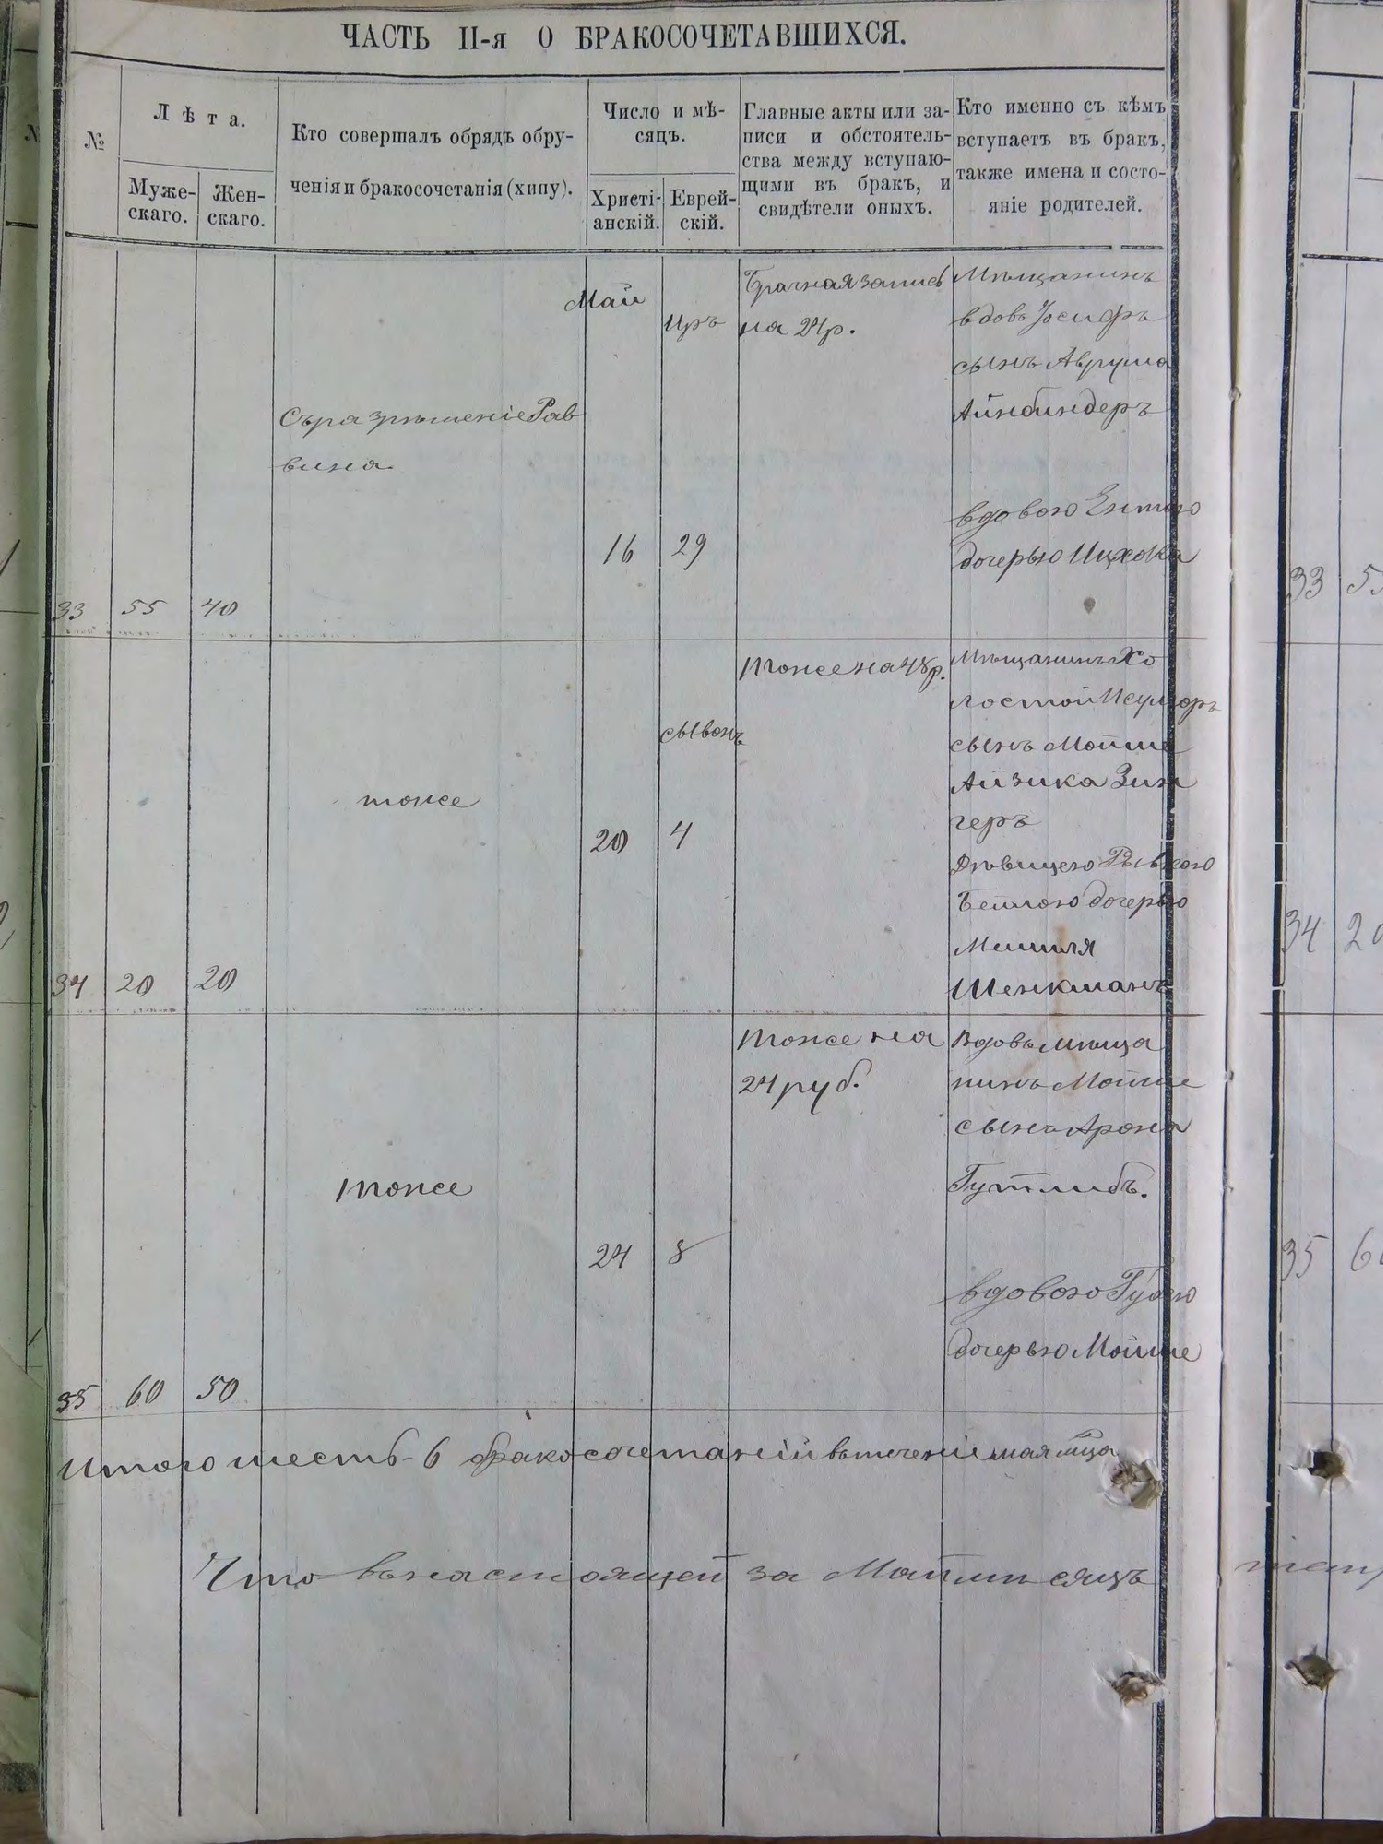 ЧАСТЬ II-я О БРАКОСОЧЕТАВШИХСЯ.
№
Лѣта.
Муже-
скаго.
Жен-
скаго.
Кто совершалъ обрядъ обру-
ченія и бракосочетанія (хипу).
Число и мѣ-
сяцъ.
Христі-
анскій.
Еврей-
скій.
Главные акты или за-
писи и обстоятель-
ства между вступаю-
щими въ бракъ, и
свидѣтели оныхъ.
Кто именно съ кѣмъ
вступаетъ въ бракъ,
также имена и состо-
яніе родителей.
33
55
40
Съ разрѣшеніе Рав
вина
Май
16
Иръ
29
Брачная запись
на 24 р.
Мѣщанинъ
вдовъ Іосифъ
сынъ Аврума
Айнбиндеръ
вдовою Ентою
дочерью Ицхока
34
20
20
тоже
20
сывонъ
4
Тоже на 48 р.
Мѣщанинъ Хо
лостой
сынъ Мойше
Айзика Зин
геръ
Дѣвицею Рывкою
Бейлою дочерью
Мешиля
Шенкманъ
35
60
50
тоже
24
8
Тоже на
24 руб.
Вдовъ мѣща
нинъ Мойше
сынъ Арона
Гутлибъ.
вдовою
дочерью Мойше
Итого шесть 6 бракосочетаній въ теченіе мая мца
Что въ настоящей за Май мѣсяцъ
33 5
34 2
35 6